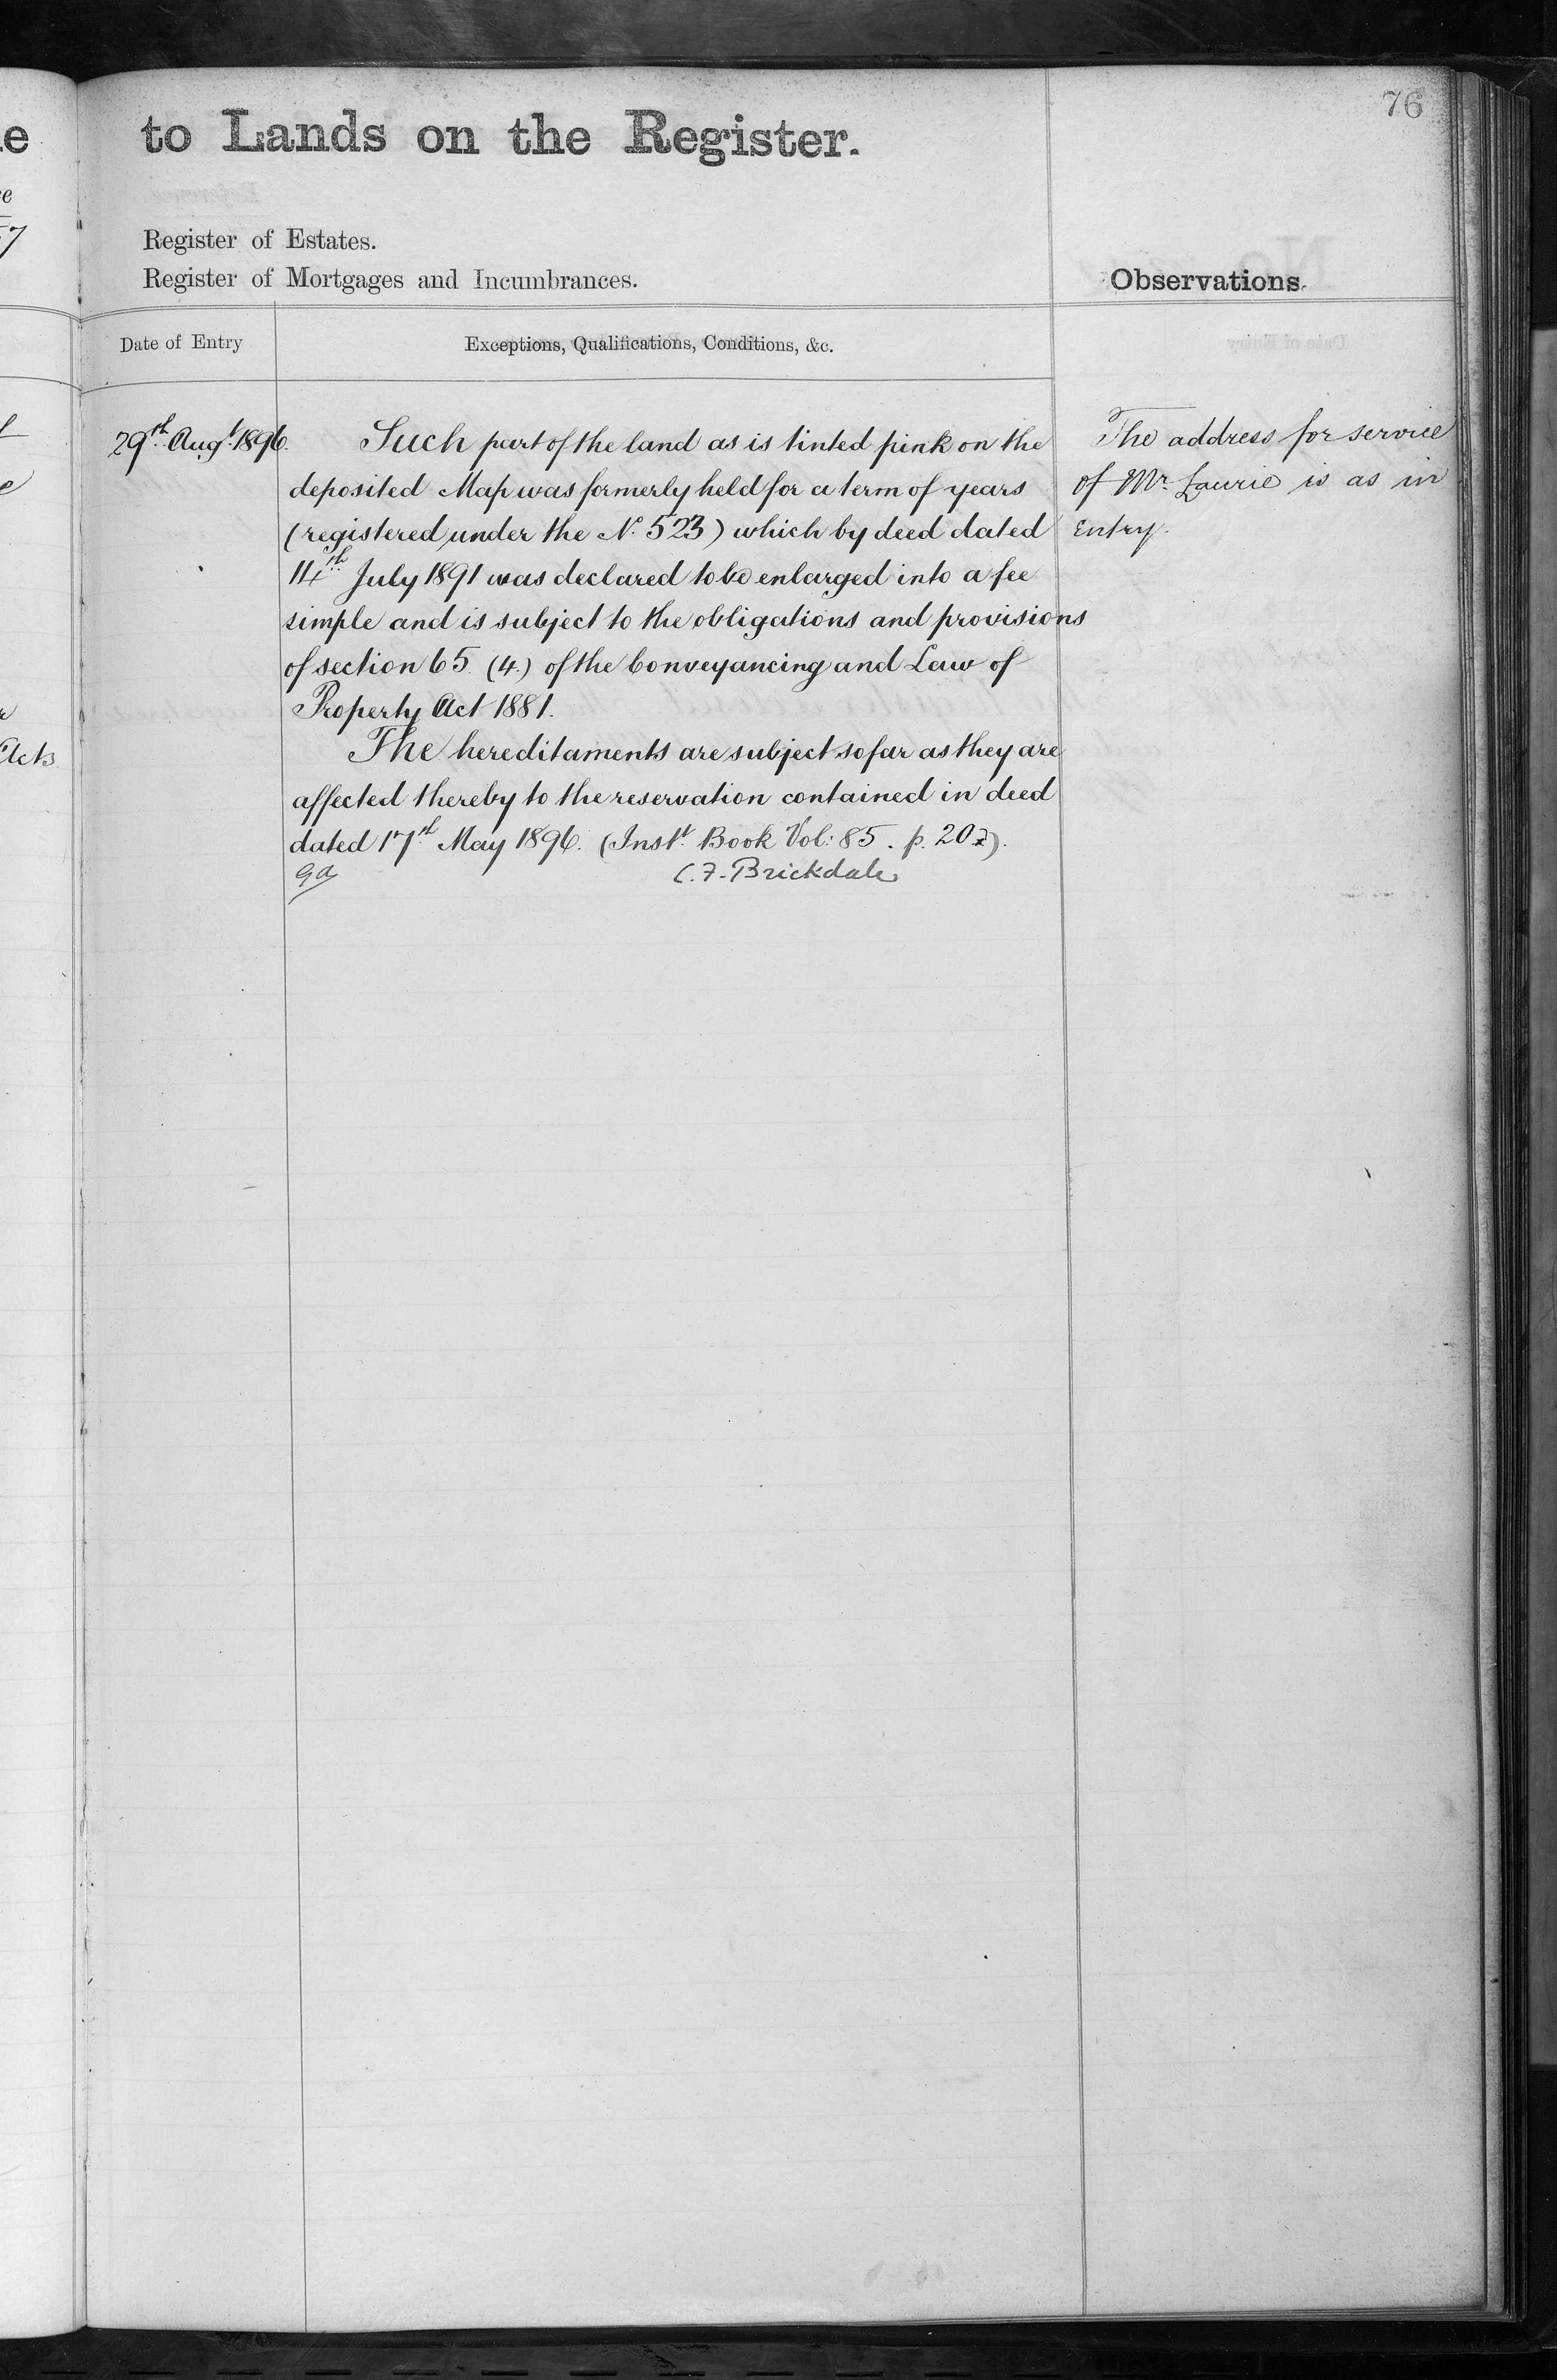 76
to Lands on the Register.
Register of Estates.
Register of Mortgages and Incumbrances.
Observations.
Date of Entry
Exceptions, Qualifications, Conditions, &c.
29th Augt 1896.
Such part of the land as is tinted pink on the
deposited Map was formerly held for a term of years
(registered under the No. 523) which by deed dated
14th July 1891 was declared to be enlarged into a fee
simple and is subject to the obligations and provisions
of section 65. (4.) of the Conveyancing and Law of
Property Act 1881.
The hereditaments are subject so far as they are
affected thereby to the reservation contained in deed
dated 17th May 1896. (Inst. Book Vol: 85. p. 207).
C. F. Brickdale
The address for service
of Mr. Laurie is as in
Entry.